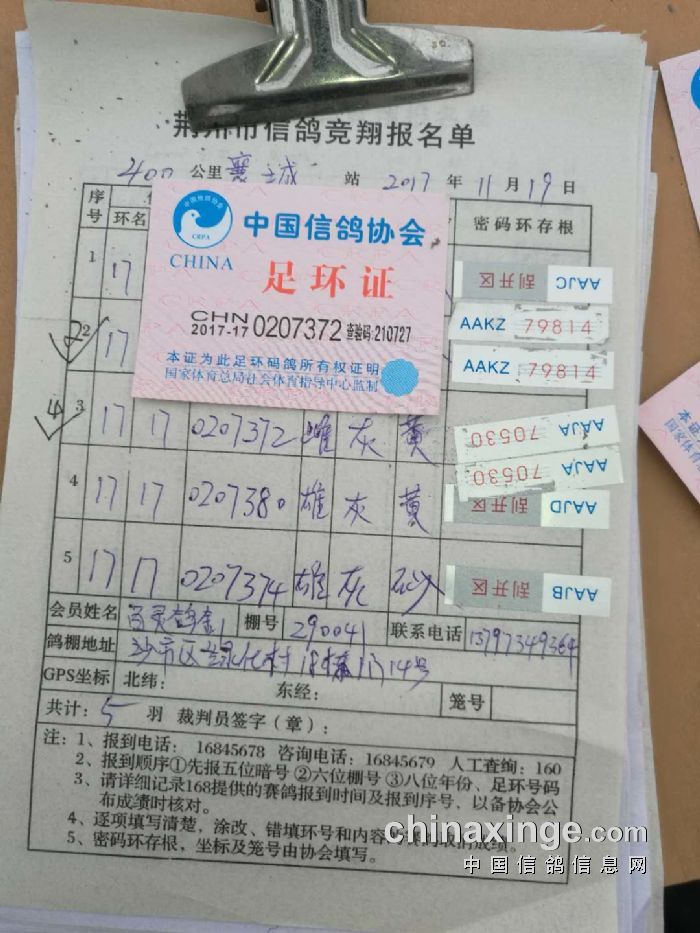 荆州市信鸽竞翔报名单
400 公里 襄城 站 2017 年 11 月 19 日
序号 环名 密码环存根
中国信鸽协会
CRPA
CHINA
足环证
CHN
2017-17 0207372 查验码:210727
本证为此足环码鸽所有权证明
国家体育总局社会体育指导中心监制
1 17 刮开区 AAJC
2 2 17 AAKZ 79814
AAKZ 79814
4 3 17 17 0207372 雌 灰 黄 AAJA 70530
AAJA 70530
4 17 17 0207380 雄 灰 黄 刮开区 AAJD
5 17 17 0207374 雄 灰 砂 刮开区 AAJB
会员姓名 棚号 290041 联系电话 13797349364
鸽棚地址 沙市区
GPS坐标 北纬: 东经: 笼号
共计: 5 羽 裁判员签字（章）:
注: 1、报到电话: 16845678 咨询电话: 16845679 人工查询: 160
2、报到顺序①先报五位暗号 ②六位棚号 ③八位年份、足环号码
3、请详细记录168提供的赛鸽报到时间及报到序号，以备协会公
布成绩时核对。
4、逐项填写清楚，涂改、错填环号和内容 成绩。
5、密码环存根，坐标及笼号由协会填写。
chinaxinge.com
中国信鸽信息网
本证
国家体育